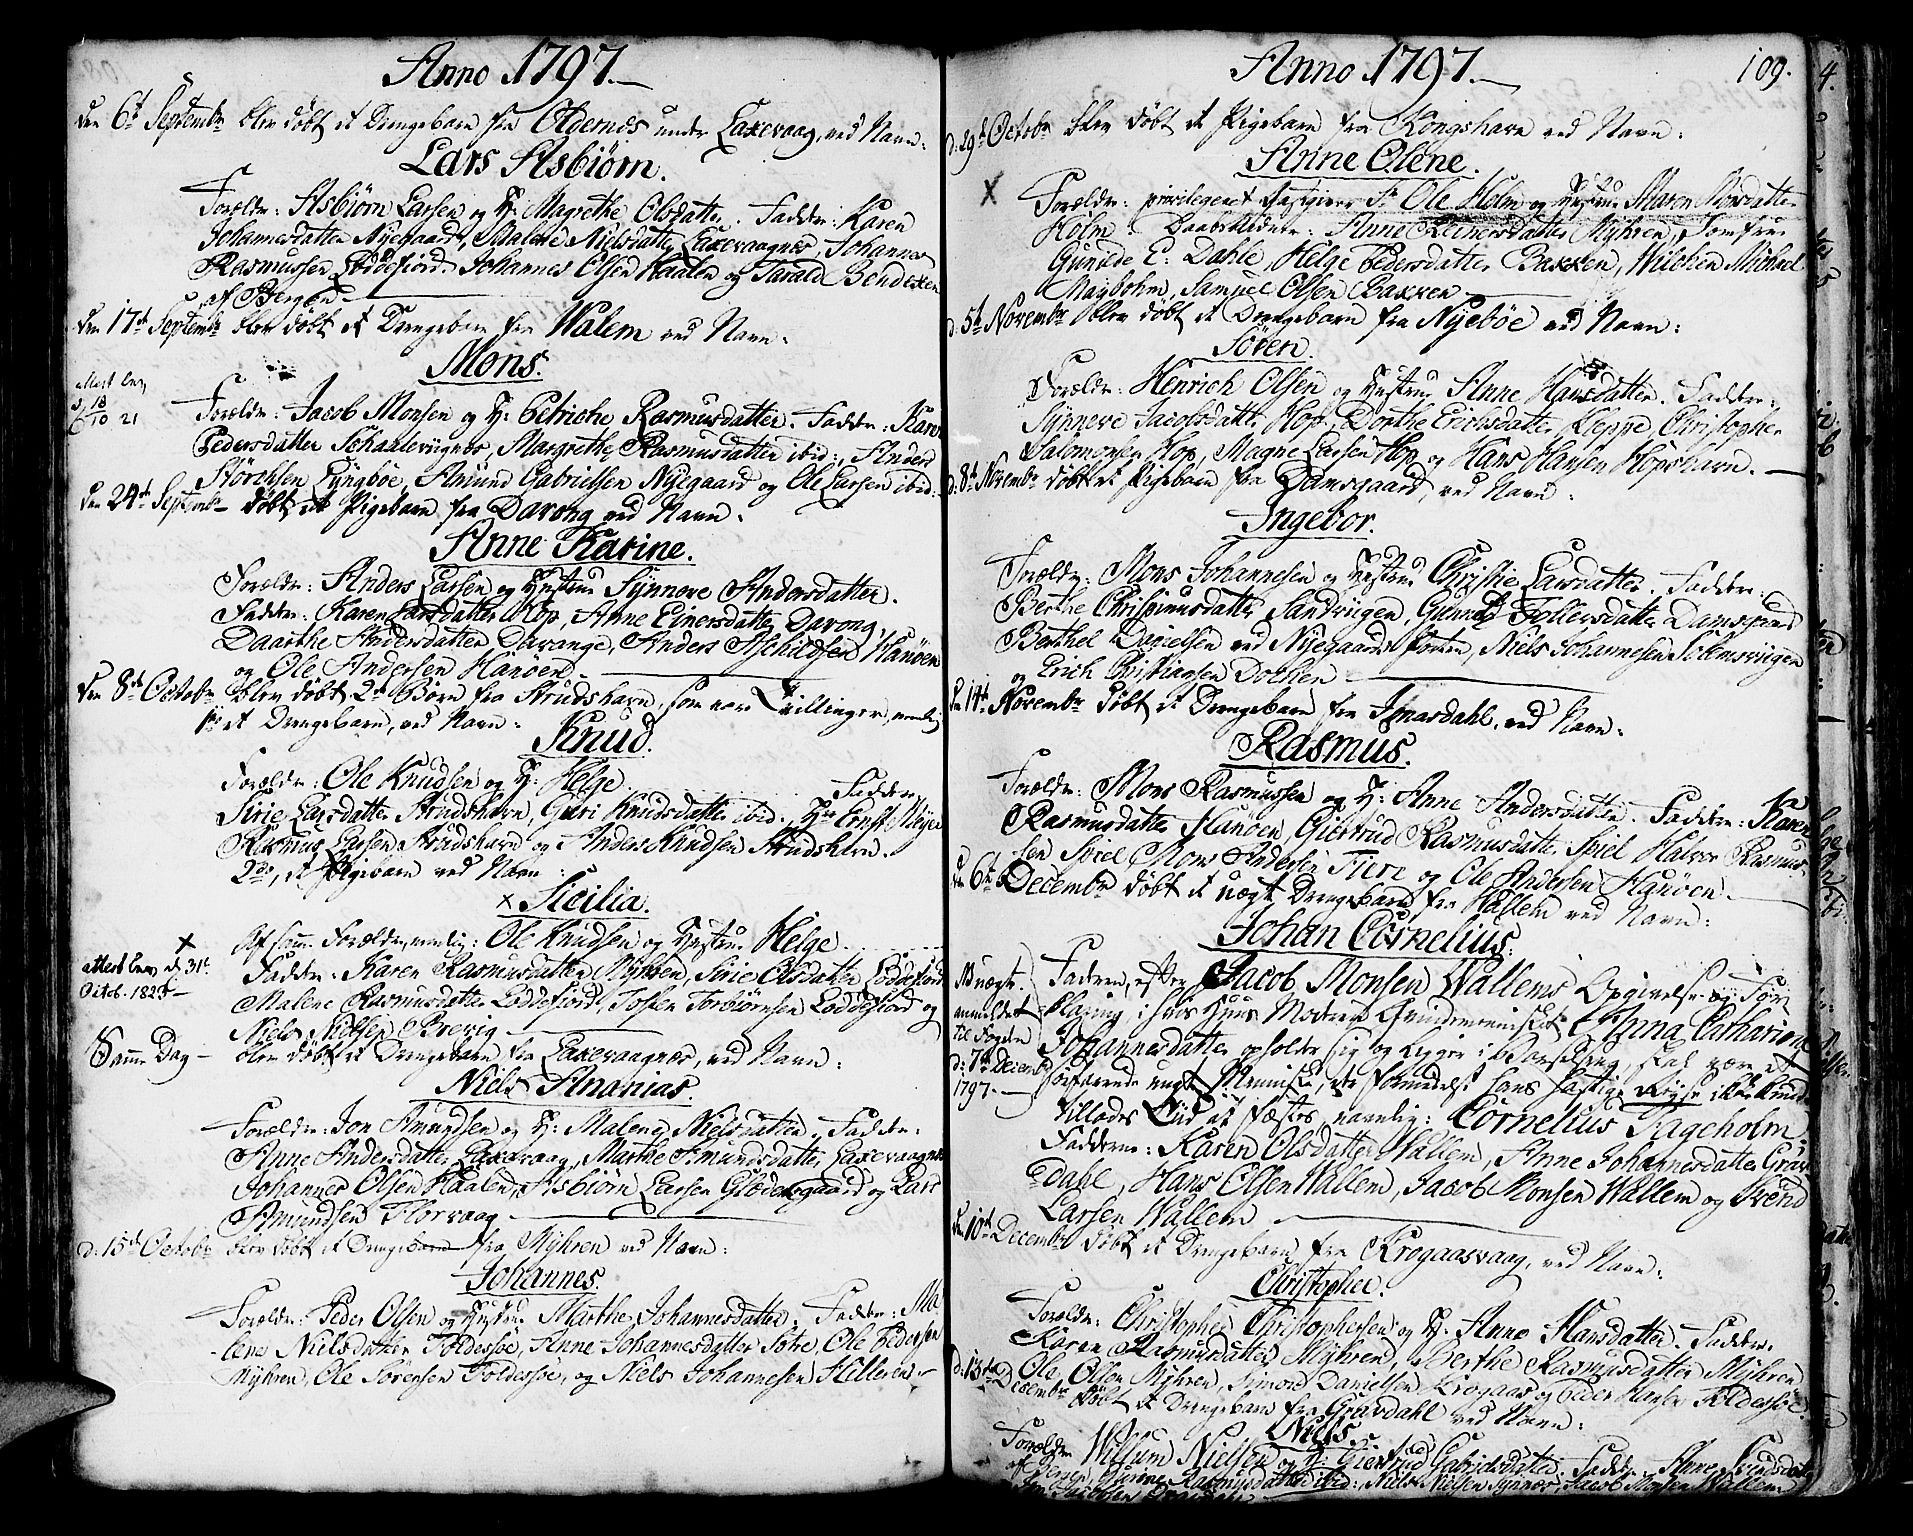 Anno 1797.
den 6te Septembr blev døbt et Drengebarn fra Oldernes under Laxevaag, ved Navn:
Lars Asbiørn.
Forældr: Asbiørn Larsen og H: Magrethe Olsdatter. Faddr: Karen
Johannesdatter Nyegaard, Malene Nielsdatter Laxevaagnes, Johannes
Rasmussen Loddefiord. Johannes Olsen Haalen og Tarald Bendixen
af Bergen
den 17de Septembr blev døbt et Drengebarn fra Walem ved Navn:
Mons.
attest lev
d. 18/10 21
Forældr: Jacob Monsen og H: Petriche Rasmusdatter. Faddr: Karen
Pedersdatter Schaalevignes, Margrethe Rasmusdatter ibid:, Anders
Størchsen Lyngbøe, Amund Gabrielsen Nyegaard og Ole Larsen ibid:
den 24de Septembr døbt et Pigebarn fra Davong ved Navn:
Anne Karine.
Forældr: Anders Larsen og Hustrue Synneve Andersdatter.
Faddr: Karen Larsdatter Hop, Anne Einersdatter Davong,
Daarthe Andersdatter Davange, Anders Aschildsen Hanøen
og Ole Andersen Hanøen.
den 8de Octobr blev døbt 2de Børn fra Strudshavn, som var Tvillinger, nemlig
1te et Drengebarn, ved Navn:
Knud.
Forældr: Ole Knudsen og H: Helge. Faddr,
Sirie Larsdatter Strudshavn, Guri Knudsdatter ibid:, Hr Ernst Meyer
Rasmus Larsen Strudshavn og Anders Knudsen Strudshavn.
2do, et Pigebarn ved Navn:
x Sicilia.
x
attest lev d. 31te
Octob. 1823
Af samme Forældre, nemlig: Ole Knudsen og Hustrue Helge.
Faddr: Karen Rasmusdatter Myhren, Sirie Olsdatter Loddefiord
Malene Rasmusdatter Loddefiord, Tosten Torbiørnsen Loddefiord og
Niels Nielsen Brevig
Samme Dag blev døbt et Drengebarn fra Laxevaagnæs, ved Navn:
Niels Ananias.
Forældr: Jon Amundsen og H: Malene Nielsdatter. Faddr:
Anne Andersdatter Laxevaag, Marthe Amundsdatter Laxevaagnes
Johannes Olsen Haalen, Asbiørn Larsen Glædesgaard og Lars
Amundsen Florvaag
d: 15de Octobr blev døbt et Drengebarn fra Myhren ved Navn:
Johannes.
Forældr: Peder Olsen og Hustrue Marthe Johannesdatter. Faddr: Ma
lene Nielsdatter Foldesøe, Anne Johannesdatter Sotre, Ole Pedersen
Myhren, Ole Sørensen Foldesøe, og Niels Johannesen Hilleren.
Anno 1797. 109.
d: 29de Octobr blev døbt et Pigebarn fra Kongshavn ved Navn:
Anne Olene.
x
Forældr: privilegeret Sr Ole Holm og Hustrue Maren Monsdatter
Holm. Daabsvidner: Anne Reinersdatter Myhren, Jomfrue
Gunilde E: Dahle, Helge Pedersdatter Bakken, Wilchen Michael
Maybohm, Samuel Olsen Bakken
d. 5te Novembr blev døbt et Drengebarn fra Nyebøe ved Navn:
Søren.
Forældr: Henrich Olsen og Hustrue Anne Hansdatter. Faddr:
Synneve Jacobsdatter Hop, Dorthe Erichsdatter Kleppe, Christopher
Salomonsen Hop, Magne Larsen Hop og Hans Hansen Hopshavn.
d: 8de Novembr døbt et Pigebarn fra Damsgaard, ved Navn:
Ingebor.
Forældr: Mons Johannesen og Hustrue Christie Larsdatter. Faddr:
Berthe Christinusdatter Sandviigen, Gunild Follersdatter Damsgaard
Berthel Danielsen ved Nyegaards Porten, Niels Johannesen Solemsviigen
og Erich Christiansen Dochen
den 14de Novembr døbt et Drengebarn fra Ipnasdahl, ved Navn:
Rasmus.
Forældr: Mons Rasmussen og H: Anne Andersdatter. Faddr: Karen
Rasmusdatter Hanøen, Giertrud Rasmusdatter Spiel, Halvor Rasmus-
sen Spiel, Mons Andersen Fiere og Ole Andersen Hanøen.
den 6te Decembr døbt et uægte Drengebarn fra Wallem ved Navn:
Johan Cornelius.
uægte.
anmeldet
til Fogden
d: 7de Decembr
1797.
Faderen, efter Jacob Monsen Wallems Opgivelse og
i sit Huus, Moderen Anna Catharina
Johannesdatter opholder sig og ligger i Barselseng, skal være et
søefarende ungt Menniske, ikke
tillader Tiid at fæstes, navnlig: Cornelius Fageholm.
Fadderne: Karen Olsdatter Wallem, Anne Johannesdatter Grav
dahl, Hans Olsen Wallem, Jacob Monsen Wallem og Svend
Larsen Wallem
den 10de Decembr døbt et Drengebarn fra Krogaasvaag, ved Navn:
Christopher.
Forældr: Christopher Christophersen og H: Anne Hansdatter. Faddr:
Karen Rasmusdatter Myhren, Berthe Rasmusdatter Myhren
Ole Olsen Myhren, Simon Danielsen Krogaas og Peder Hansen Foldesøe.
d: 13de Decembr døbt et Drengebarn fra Gravdahl ved Navn:
Niels.
Forældr: Willum Nielsen og H: Giertrud Gabrielsdatter. Faddr: Anne Svendsdatter
Rasmusdatter ibid:, Niels Nielsen Synnes, Jacob Monsen Wallem